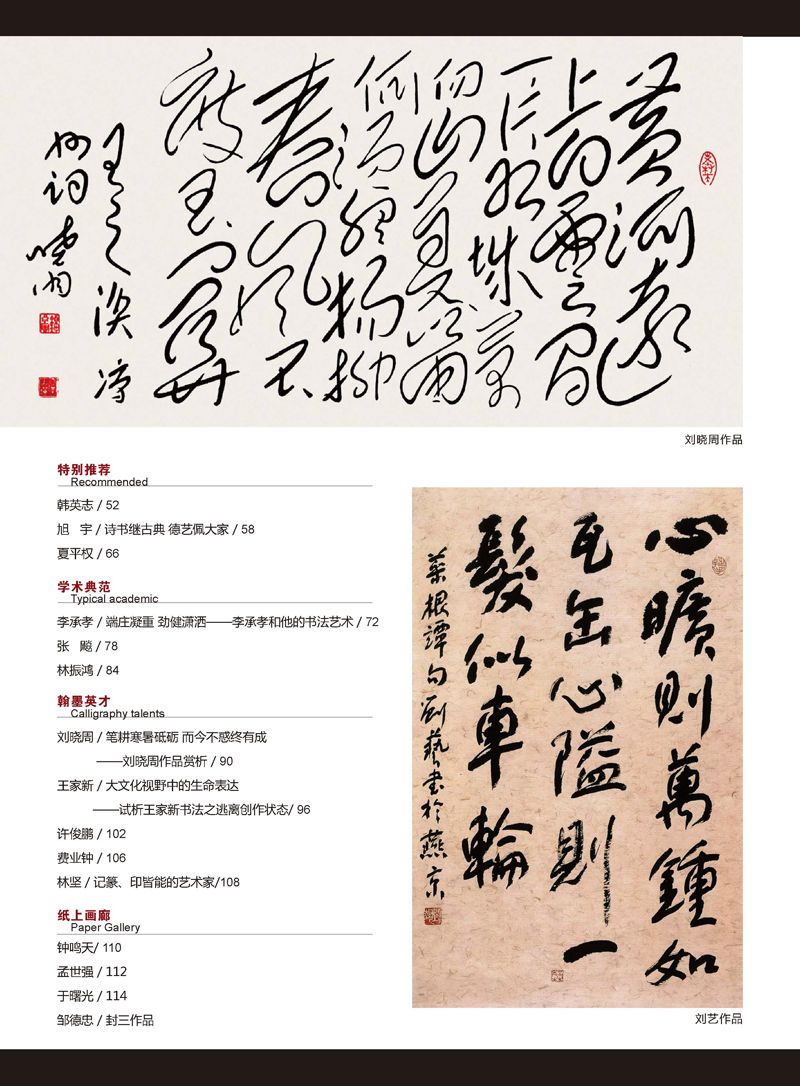 黄河遠
上白雲间
一片孤城萬
仞山羌笛
何須怨楊柳
春風不
度玉門關
王之渙凉
州詞 曉周
刘晓周作品
特别推荐
Recommended
韩英志 / 52
旭 宇 / 诗书继古典 德艺佩大家 / 58
夏平权 / 66
学术典范
Typical academic
李承孝 / 端庄凝重 劲健潇洒——李承孝和他的书法艺术 / 72
张 飚 / 78
林振鸿 / 84
翰墨英才
Calligraphy talents
刘晓周 / 笔耕寒暑砥砺 而今不感终有成
——刘晓周作品赏析 / 90
王家新 / 大文化视野中的生命表达
——试析王家新书法之逃离创作状态/ 96
许俊鹏 / 102
费业钟 / 106
林坚 / 记篆、印皆能的艺术家/108
纸上画廊
Paper Gallery
钟鸣天/ 110
孟世强 / 112
于曙光 / 114
邹德忠 / 封三作品
心曠則萬鍾如
瓦缶心隘則一
髮似車輪
菜根譚句劉藝書於燕京
刘艺作品